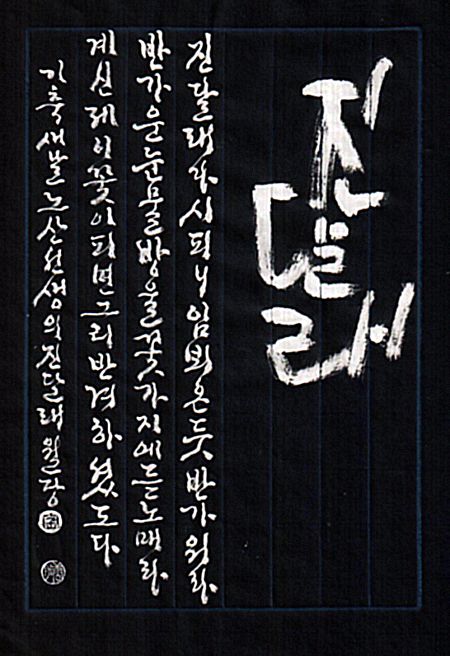 진달래
진달래다시피니임뵈온듯반가워라
반가운눈물방울꽃가지에듣노매라
계신제이꽃이피면그리반겨하셨도다
기축 노산선생의진달래월당